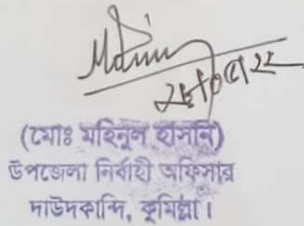 (মোঃ মহিনুল হাসান)
উপজেলা নির্বাহী অফিসার
দাউদকান্দি, কুমিল্লা।